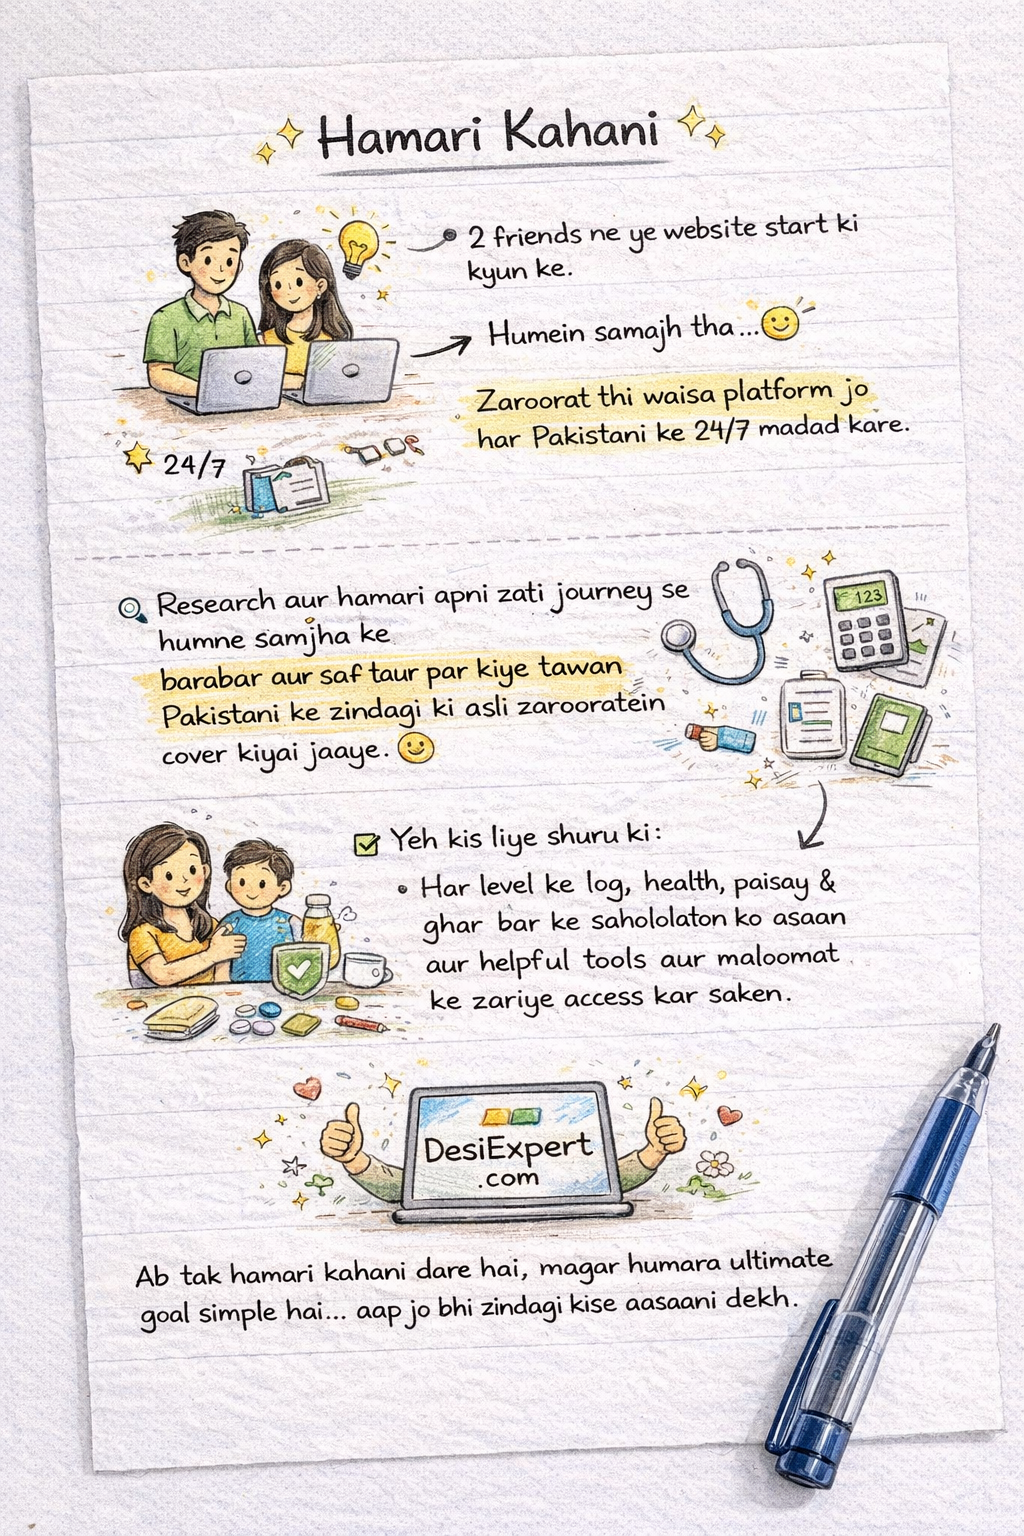 Hamari Kahani
2 friends ne ye website start ki
kyun ke.
Humein samajh tha...
Zaroorat thi waisa platform jo
har Pakistani ke 24/7 madad kare.
24/7
Research aur hamari apni zati journey se
humne samjha ke
barabar aur saf taur par kiye tawan
Pakistani ke zindagi ki asli zarooratein
cover kiyai jaaye.
123
Yeh kis liye shuru ki:
• Har level ke log, health, paisay &
ghar bar ke sahololaton ko asaan
aur helpful tools aur maloomat
ke zariye access kar saken.
DesiExpert
.com
Ab tak hamari kahani dare hai, magar humara ultimate
goal simple hai... aap jo bhi zindagi kise aasaani dekh.